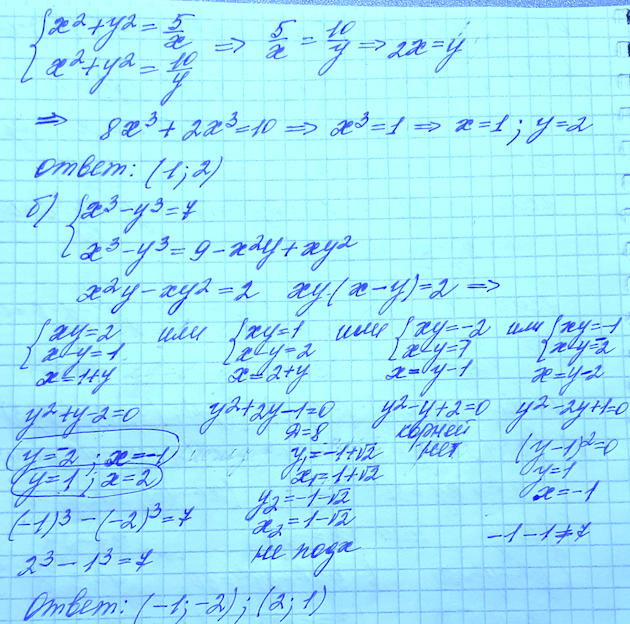 {x²+y²=5/x ⇒ 5/x = 10/y ⇒ 2x=y
{x²+y²=10/y
⇒ 8x³+2x³=10 ⇒ x³=1 ⇒ x=1; y=2
ответ: (1; 2)
б) {x³-y³=7
{x³-y³=9-x²y+xy²
x²y-xy²=2 xy(x-y)=2 ⇒
{xy=2 или {xy=1 или {xy=-2 или {xy=-1
{x-y=1 {x-y=2 {x-y=-1 {x-y=-2
x=1+y x=2+y x=y-1 x=y-2
y²+y-2=0 y²+2y-1=0 y²-y+2=0 y²-2y+1=0
y=-2; x=-1 Д=8 корней нет (y-1)²=0
y=1; x=2 y₁=-1+√2 y=1
x₁=1+√2 x=-1
(-1)³-(-2)³=7 y₂=-1-√2
x₂=1-√2 -1-1≠7
2³-1³=7 не подх
Ответ: (-1; -2); (2; 1)